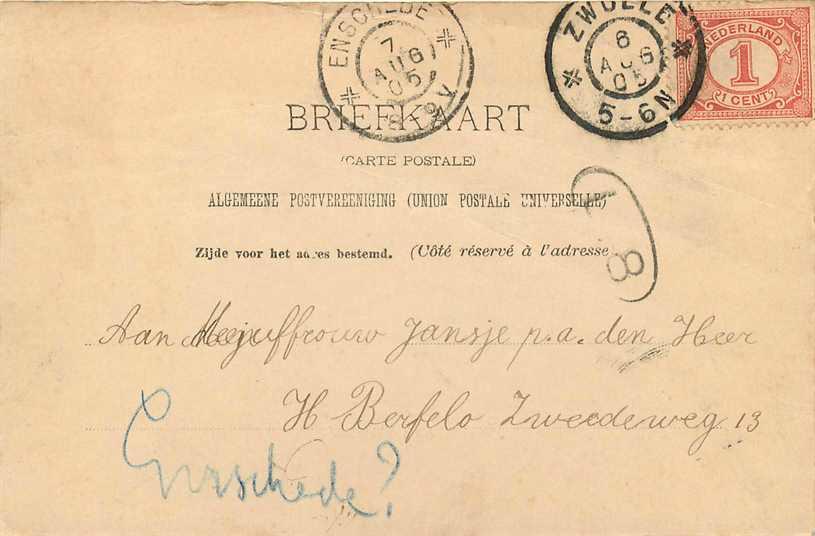 ENSCHEDE
7
AUG
05
8-9V
ZWOLLE
6
AUG
05
5-6N
NEDERLAND
1
1 CENT
BRIEFKAART
(CARTE POSTALE)
ALGEMEENE POSTVEREENIGING (UNION POSTALE UNIVERSELLE)
Zijde voor het adres bestemd. (Côté réservé à l'adresse
8
Aan Mejuffrouw Jansje p.a. den Heer
H Berfelo Zweedeweg 13
Enschede?